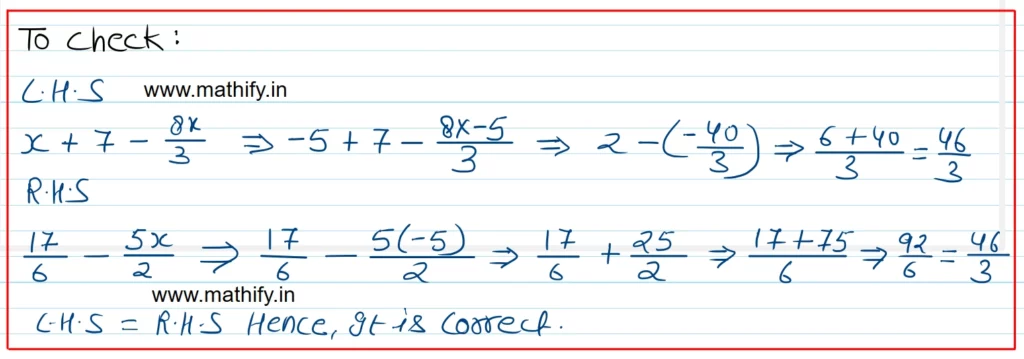 To Check:
L.H.S www.mathify.in
x + 7 - 8x/3 ⇒ -5 + 7 - 8x-5/3 ⇒ 2 - (-40/3) ⇒ 6+40/3 = 46/3
R.H.S
17/6 - 5x/2 ⇒ 17/6 - 5(-5)/2 ⇒ 17/6 + 25/2 ⇒ 17+75/6 ⇒ 92/6 = 46/3
www.mathify.in
L.H.S = R.H.S Hence, It is Correct.